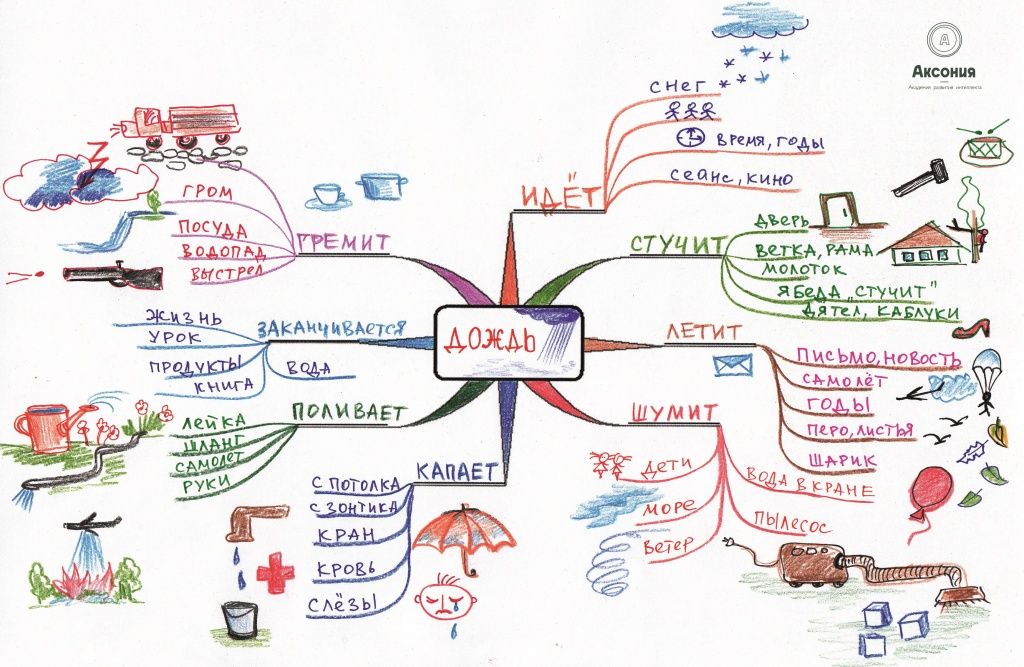 ДОЖДЬ
ИДЁТ
СНЕГ
ВРЕМЯ, ГОДЫ
СЕАНС, КИНО
СТУЧИТ
ДВЕРЬ
ВЕТКА, РАМА
МОЛОТОК
ЯБЕДА „СТУЧИТ"
ДЯТЕЛ, КАБЛУКИ
ЛЕТИТ
ПИСЬМО, НОВОСТЬ
САМОЛЁТ
ГОДЫ
ПЕРО, ЛИСТЬЯ
ШАРИК
ШУМИТ
ДЕТИ
МОРЕ
ВЕТЕР
ВОДА В КРАНЕ
ПЫЛЕСОС
КАПАЕТ
С ПОТОЛКА
С ЗОНТИКА
КРАН
КРОВЬ
СЛЁЗЫ
ПОЛИВАЕТ
ЛЕЙКА
ШЛАНГ
САМОЛЕТ
РУКИ
ЗАКАНЧИВАЕТСЯ
ЖИЗНЬ
УРОК
ПРОДУКТЫ
КНИГА
ВОДА
ГРЕМИТ
ГРОМ
ПОСУДА
ВОДОПАД
ВЫСТРЕЛ
А
Аксония
Академия развития интеллекта